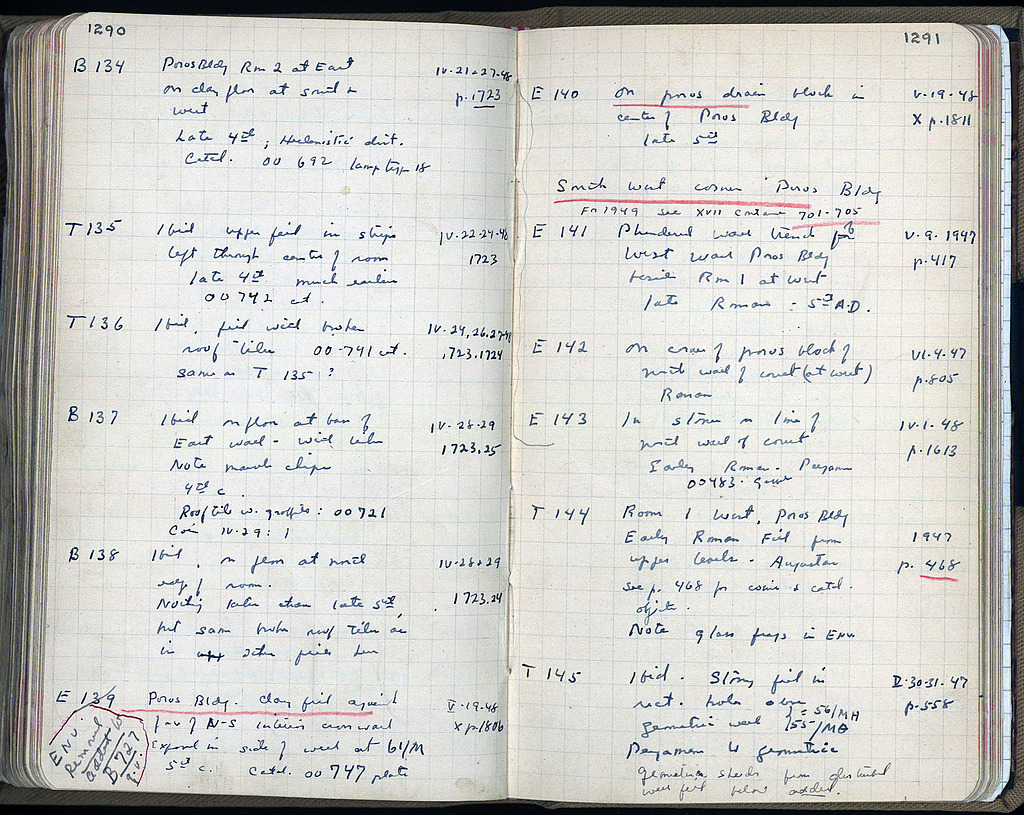 1290
B 134 Poros Bldg Rm 2 at East IV·21+27·48
on clay floor at south & p. 1723
west
Late 4th ; Hellenistic dist.
Catal. 00 692 lamp type 18
T 135 Ibid upper fill in strips IV·22·24·48
left through center of room 1723
late 4th much earlier
00 742 cat.
T 136 Ibid, fill with broken IV·24,26,27·48
roof tiles 00·741 cat. 1723,1724
same as T 135 ?
B 137 Ibid on floor at base of IV·28·29
East wall - with tiles 1723,25
Note marble chips
4th c.
Roof tile w. graffito: 00721
Coin IV·29: 1
B 138 Ibid, on floor at north IV·28+29
edge of room.
Nothing later than late 5th, 1723,24
but same broken roof tiles as
in other piles here
E 139 Poros Bldg. clay fill against V·19·48
of N-S interior crosswall X p.1806
Exposed in side of well at 61/M
5th c. Catal. 00 747 plate
Env. removed added to B 727 q.v.
1291
E 140 on poros drain block in V·19·48
center of Poros Bldg X p.1811
late 5th
South west corner Poros Bldg
For 1949 see XVII Containers 701-705
E 141 Plundered wall trench for V·9·1947
West wall Poros Bldg p.417
beside Rm 1 at west
late Roman : 5th A.D.
E 142 on core of poros block of VI·4·47
north wall of court (at west) p.805
Roman
E 143 In stones in line of IV·1·48
north wall of court p.1613
Early Roman.
00483·
T 144 Room 1 West, Poros Bldg
Early Roman Fill from 1947
upper levels. Augustan p. 468
see p. 468 for coins & catal.
objects.
Note glass frags in Env.
T 145 Ibid. Stony fill in 30·31·47
rect. hole over p·558
geometric well : 56/MH
55/MΘ
Pergamene to geometric
geometric sherds from disturbed
well fill below added.